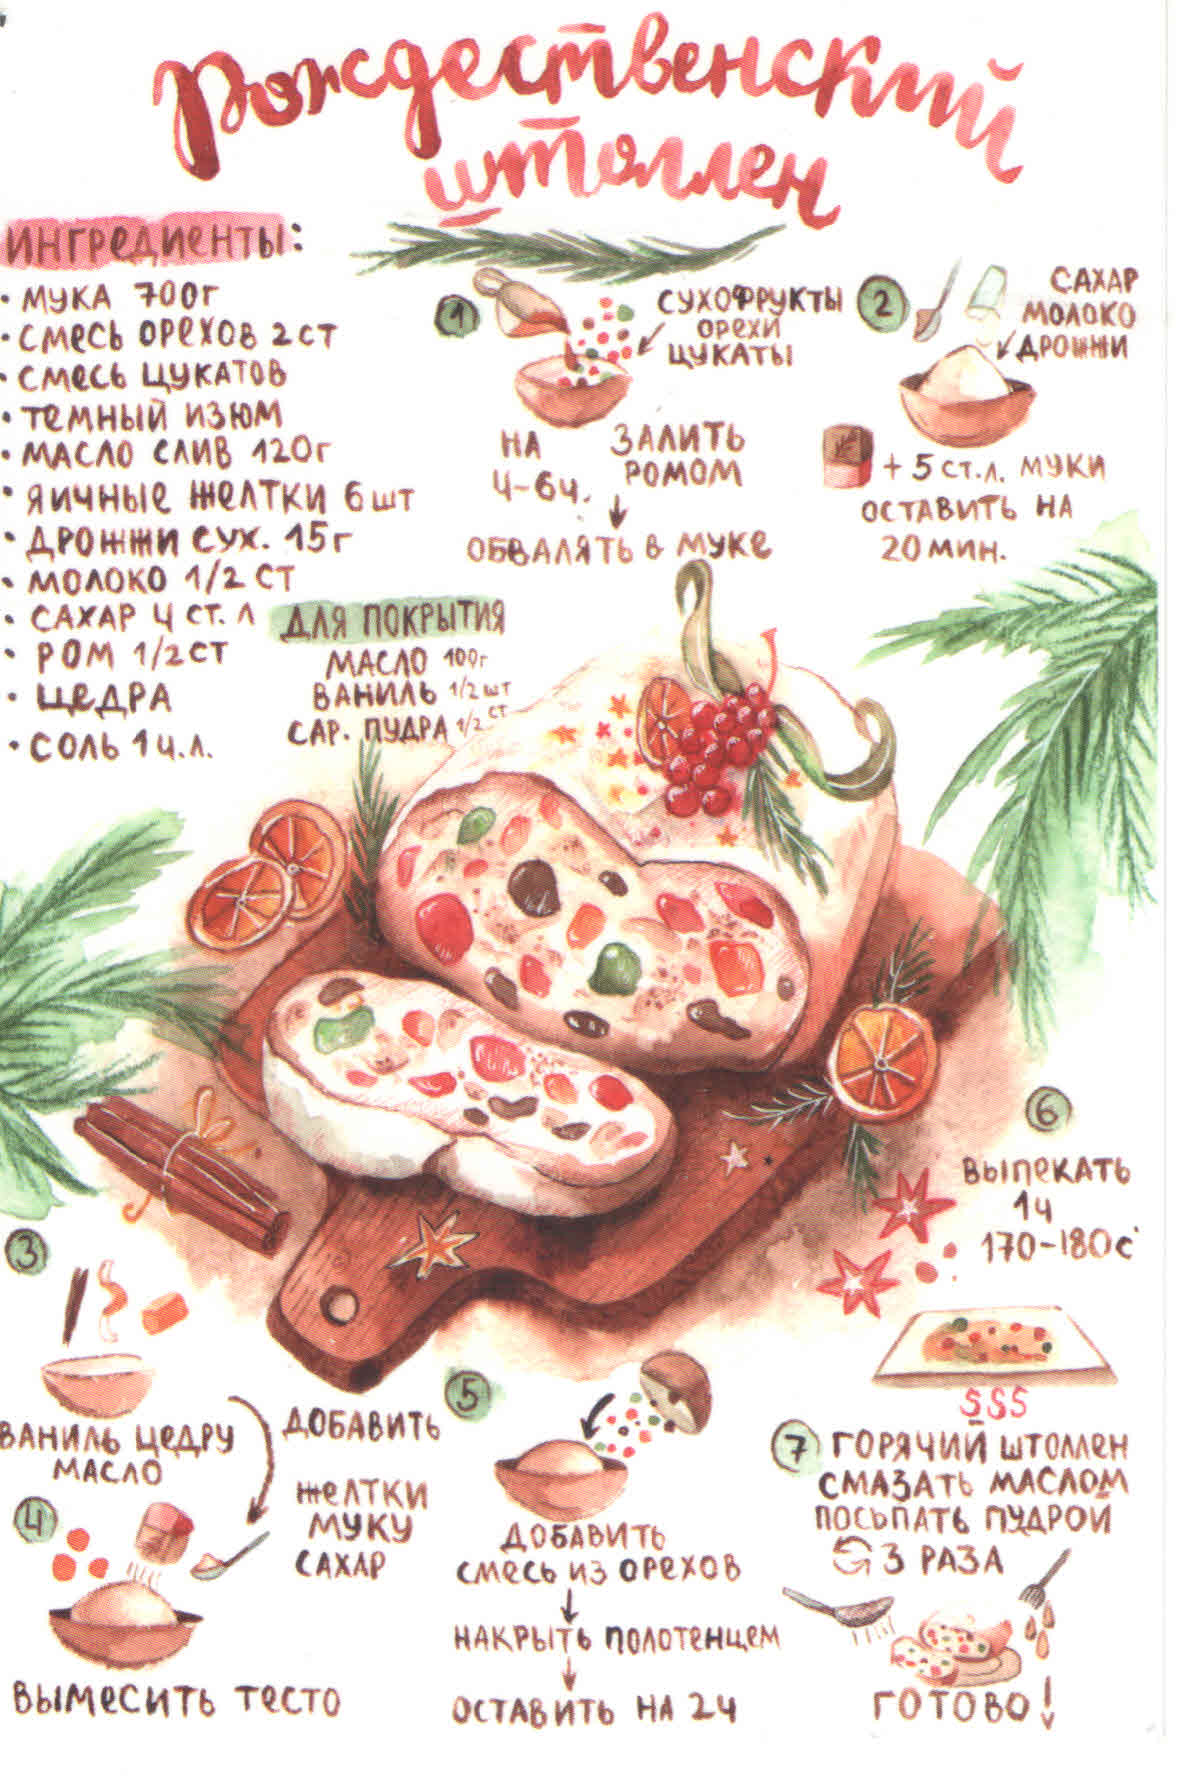 Рождественский
штоллен
ИНГРЕДИЕНТЫ:
• МУКА 700г
• СМЕСЬ ОРЕХОВ 2 СТ
• СМЕСЬ ЦУКАТОВ
• ТЕМНЫЙ ИЗЮМ
• МАСЛО СЛИВ 120г
• ЯИЧНЫЕ ЖЕЛТКИ 6 шт
• ДРОЖЖИ СУХ. 15г
• МОЛОКО 1/2 СТ
• САХАР 4 СТ. Л
• РОМ 1/2 СТ
• ЦЕДРА
• СОЛЬ 1 Ч.Л.
ДЛЯ ПОКРЫТИЯ
МАСЛО 100г
ВАНИЛЬ 1/2 шт
САР. ПУДРА 1/2 СТ
1
СУХОФРУКТЫ
ОРЕХИ
ЦУКАТЫ
НА
4-6ч.
ЗАЛИТЬ
РОМОМ
ОБВАЛЯТЬ В МУКЕ
2
САХАР
МОЛОКО
ДРОЖЖИ
+ 5 СТ.Л. МУКИ
ОСТАВИТЬ НА
20 МИН.
3
ВАНИЛЬ ЦЕДРУ
МАСЛО
ДОБАВИТЬ
ЖЕЛТКИ
МУКУ
САХАР
4
ВЫМЕСИТЬ ТЕСТО
5
ДОБАВИТЬ
СМЕСЬ ИЗ ОРЕХОВ
НАКРЫТЬ ПОЛОТЕНЦЕМ
ОСТАВИТЬ НА 2Ч
6
ВЫПЕКАТЬ
1Ч
170-180С°
7 ГОРЯЧИЙ ШТОЛЛЕН
СМАЗАТЬ МАСЛОМ
ПОСЫПАТЬ ПУДРОЙ
3 РАЗА
ГОТОВО!